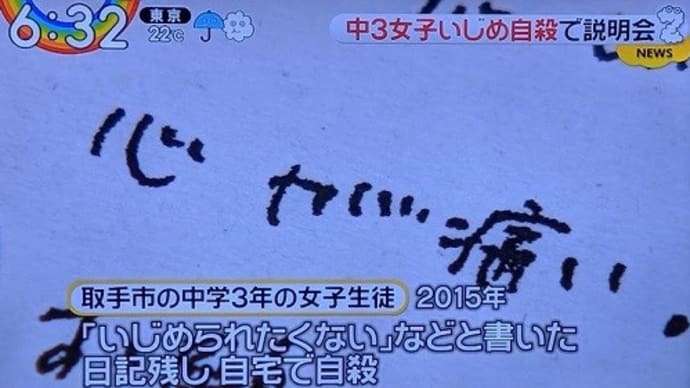 6:32
東京
22℃
中3女子いじめ自殺で説明会
NEWS
心が痛い.
取手市の中学3年の女子生徒 2015年
「いじめられたくない」などと書いた
日記残し 自宅で自殺